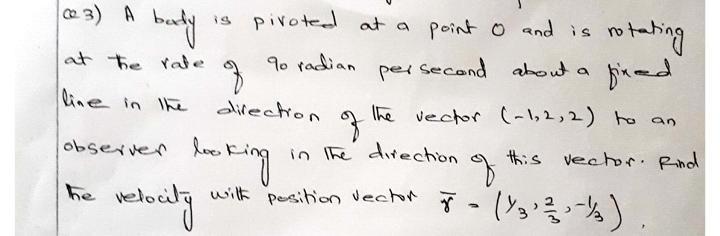 Q3) A body is pivoted at a point O and is rotating
at the rate of 90 radian per second about a fixed
line in the direction of the vector (-1,2,2) to an
observer looking in the direction of this vector. Find
the velocity with position vector r̄ = (1/3, 2/3, -1/3).